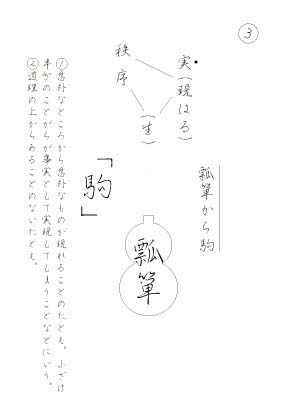 ③
瓢箪から駒
実(現はる)
秩序
(生)
瓢箪
「駒」
①意外なところから意外なものが現れることのたとえ。ふざけ
半分のことがらが事実として実現してしまうことなどにいう。
②道理の上からあることのないたとえ。